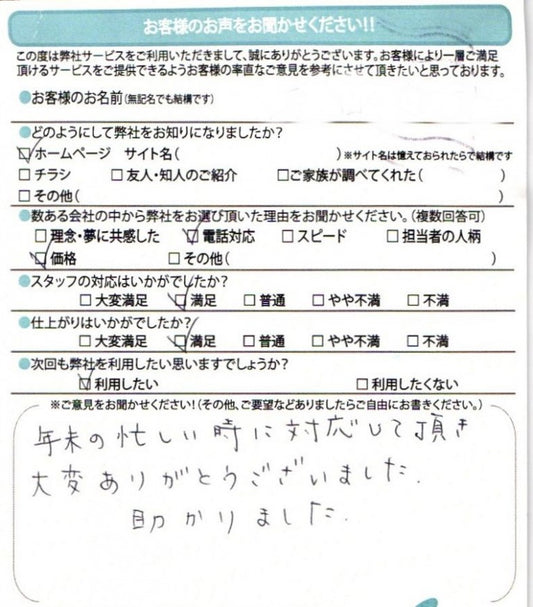 お客様のお声をお聞かせください!!
この度は弊社サービスをご利用いただきまして、誠にありがとうございます。お客様により一層ご満足
頂けるサービスをご提供できるようお客様の率直なご意見を参考にさせて頂きたいと思っております。
●お客様のお名前(無記名でも結構です)
●どのようにして弊社をお知りになりましたか?
☑ホームページ サイト名( )※サイト名は憶えておられたらで結構です
□チラシ □友人・知人のご紹介 □ご家族が調べてくれた( )
□その他( )
●数ある会社の中から弊社をお選び頂いた理由をお聞かせください。(複数回答可)
□理念・夢に共感した ☑電話対応 □スピード □担当者の人柄
☑価格 □その他( )
●スタッフの対応はいかがでしたか?
□大変満足 ☑満足 □普通 □やや不満 □不満
●仕上がりはいかがでしたか?
□大変満足 ☑満足 □普通 □やや不満 □不満
●次回も弊社を利用したい思いますでしょうか?
☑利用したい □利用したくない
※ご意見をお聞かせください!(その他、ご要望などありましたらご自由にお書きください。)
年末の忙しい時に対応して頂き
大変ありがとうございました.
助かりました.